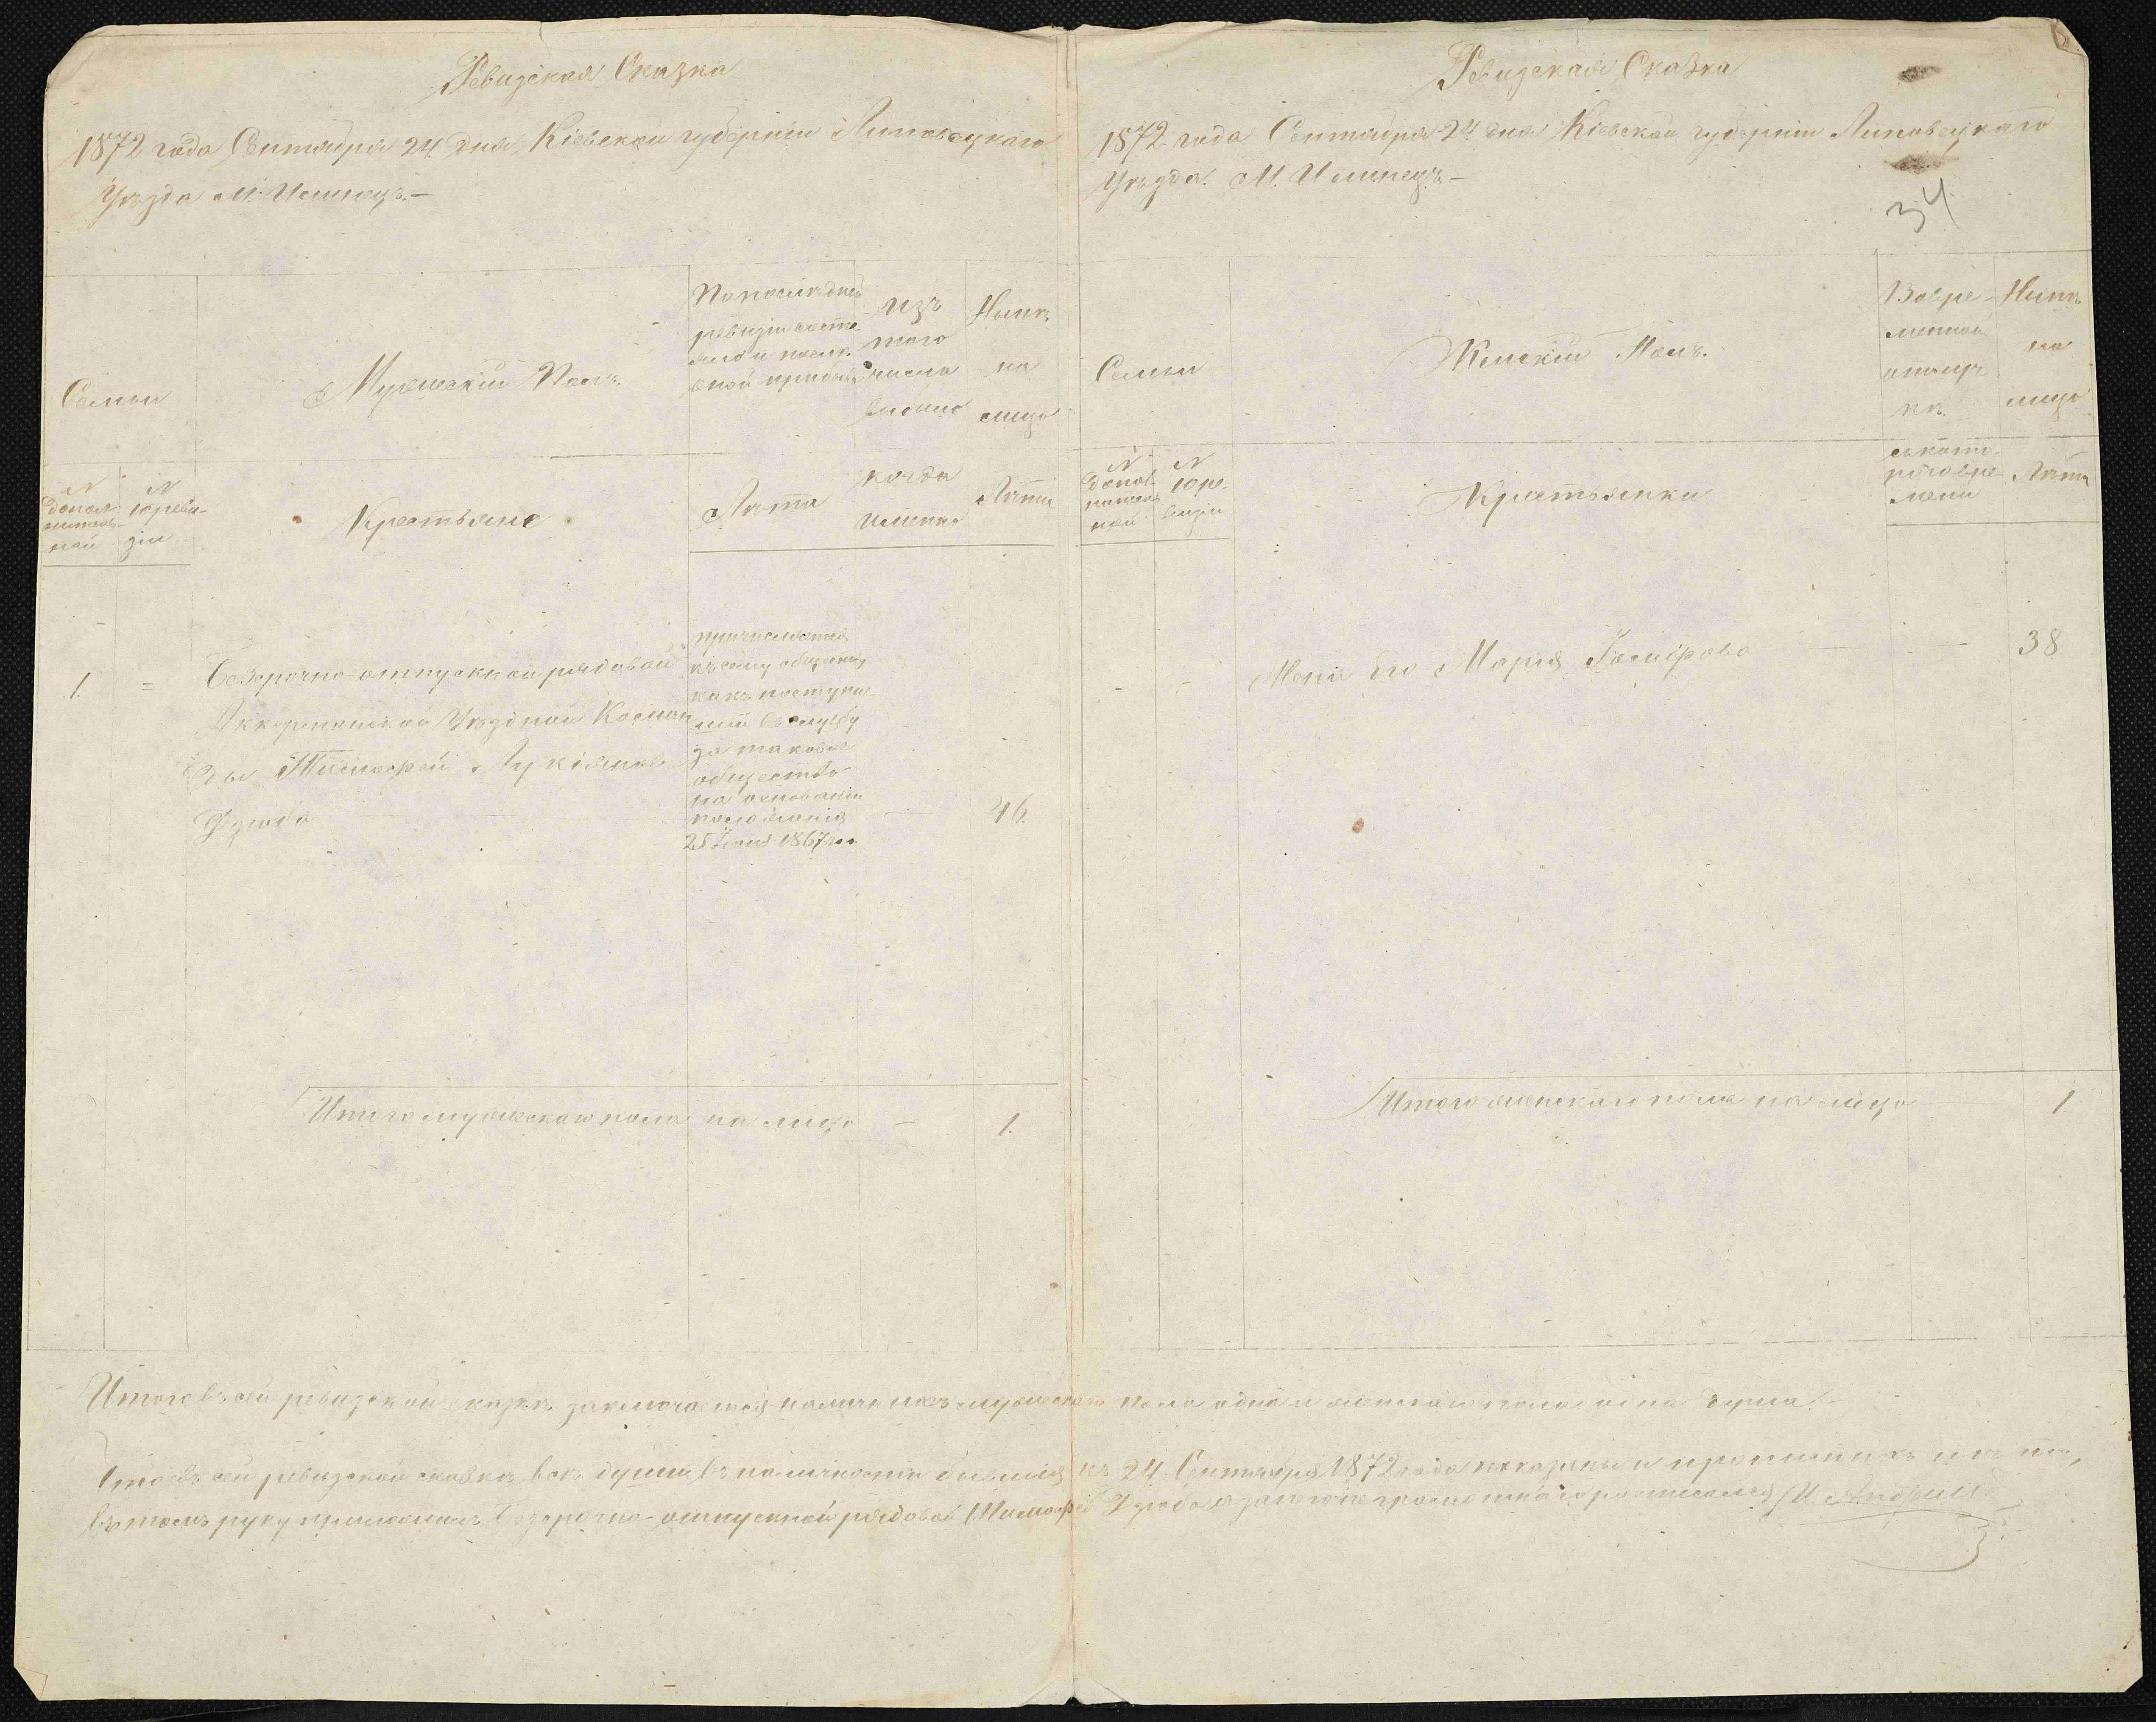 Ревизская Сказка
1872 года Сентября 24 дня Кіевской губерніи Липовецкаго
Уѣзда М. Илинецъ.—
Семьи
Мужескій Полъ.
По послѣдней
ревизіи состо-
яло и послѣ
оной прибыло
изъ
того
числа
выбыло
Нынѣ
на
лицо
№
допол-
нитель-
ной
№
10 реви-
зіи
Крестьяне
Лѣта
когда
именно
Лѣта
1.
=
Безсрочно-отпускной рядовой
Аккерманской Уѣздной Коман
ды Тимофей Лукіяновъ
Дзюба
причисляется
къ сему обществу
какъ поступи-
вшій въ службу
за таковое
общество
на основаніи
положенія
25 Іюня 1867 го
—
46.
Итого мужескаго пола на лицо — 1.
Ревизская Сказка
1872 года Сентября 24 дня Кіевской губерніи Липовецкаго
Уѣзда. М. Илинецъ.—
34
Семьи
Женскій Полъ.
Вовре-
менной
отлуч
кѣ.
Нынѣ
на
лицо
№
допол-
нитель
ной
№
10 ре-
визіи
Крестьянки
съ кото-
раго вре-
мени
Лѣта
-
-
Жена Его Марія
—
38
Итого женскаго пола на лицо
1
Итого въ сей ревизской сказкѣ заключается наличныхъ мужескаго пола одна и женскаго пола одна душа.—
Что въ сей ревизской сказкѣ всѣ души въ наличности бывшія къ 24 Сентября 1872 года показаны и прописныхъ нѣтъ,
въ томъ руку приложилъ Безсрочно-отпускной рядовой Тимофей Дзюба а за него неграмотнаго росписался И.